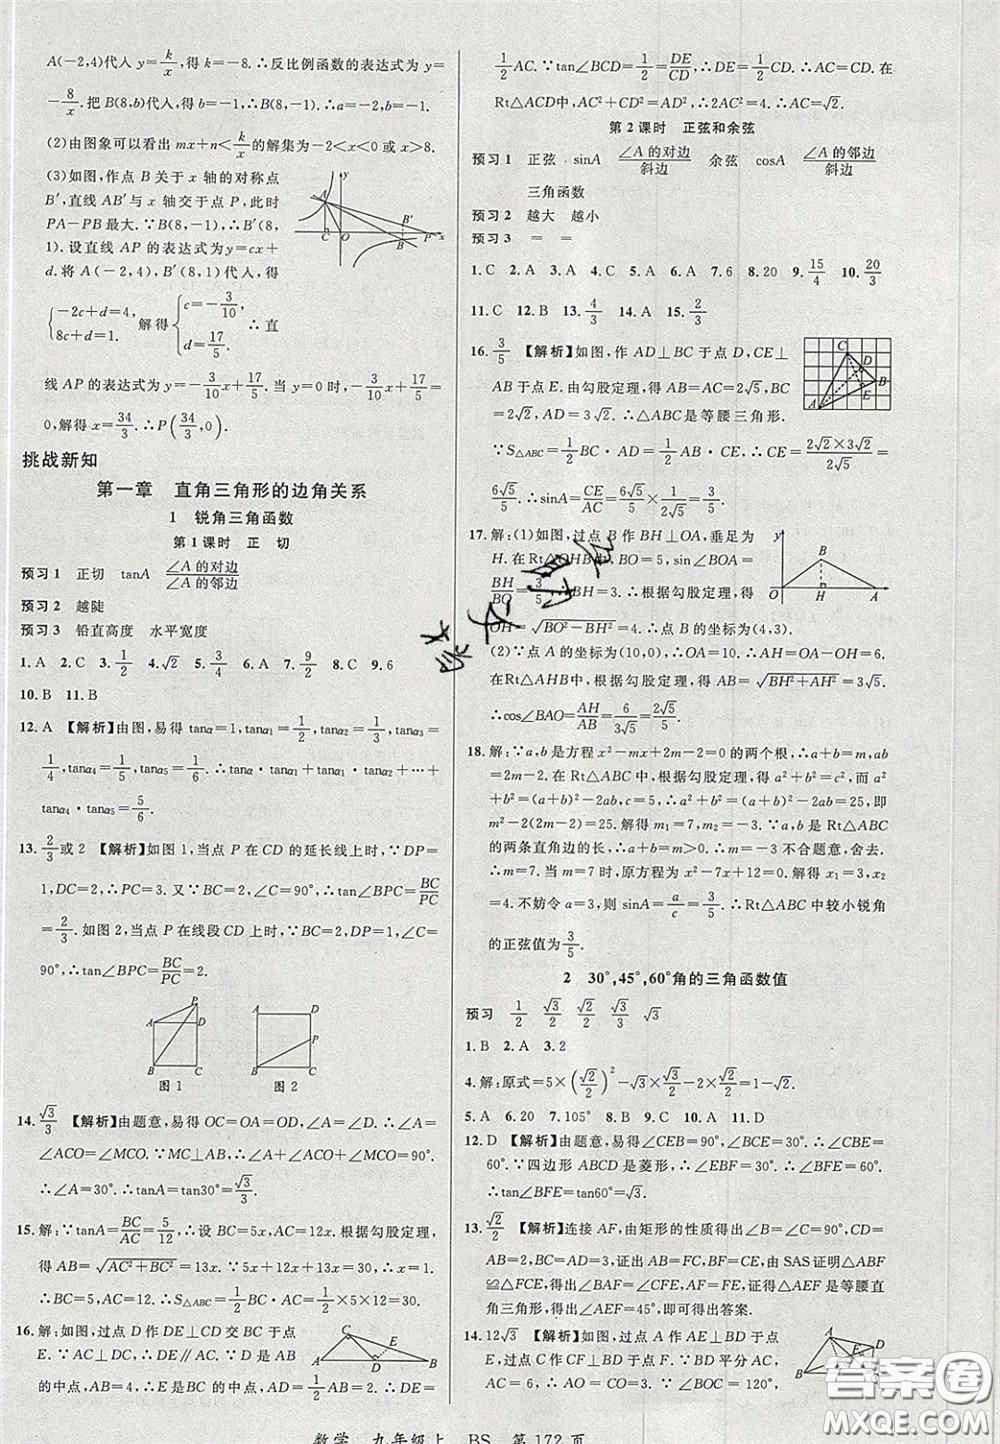 A(-2,4)代入 y=k/x,得 k=-8.∴反比例函数的表达式为 y=
-8/x.把 B(8,b)代入,得 b=-1,∴B(8,-1).∴a=-2,b=-1.
(2)由图象可以看出 mx+n<k/x的解集为-2<x<0或 x>8.
(3)如图,作点 B 关于 x 轴的对称点
B′,直线 AB′与 x 轴交于点 P,此时
PA-PB最大.∵B(8,-1),∴B′(8,
1).设直线 AP 的表达式为 y=cx+
d.将 A(-2,4),B′(8,1)代入,得
{-2c+d=4, 8c+d=1. 解得{c=-3/10, d=17/5. ∴直
线 AP 的表达式为 y=-3/10x+17/5.当 y=0时,-3/10x+17/5=
0,解得 x=34/3.∴P(34/3,0).
挑战新知
第一章 直角三角形的边角关系
1 锐角三角函数
第1课时 正 切
预习1 正切 tanA ∠A的对边/∠A的邻边
预习2 越陡
预习3 铅直高度 水平宽度
1.A 2.C 3.1/2 4.√2 5.1/2 6.A 7.9/2 8.C 9.6
10.B 11.B
12.A 【解析】由图,易得 tanα=1,tanα₁=1/2,tanα₂=1/3,tanα₃=
1/4,tanα₄=1/5,∴tanα·tanα₁+tanα₁·tanα₂+…+
tanα₄·tanα₅=5/6.
13.2/3或2 【解析】如图1,当点 P 在CD 的延长线上时,∵DP=
1,DC=2,∴PC=3.又∵BC=2,∠C=90°,∴tan∠BPC=BC/PC
=2/3.如图2,当点 P 在线段 CD 上时,∵DP=1,DC=2,∴PC=1.又∵BC=2,∠C=
90°,∴tan∠BPC=BC/PC=2.
P A D B C 图1
A D P B C 图2
14.√3/3 【解析】由题意,易得 OC=OA=OD,∴∠A=
∠ACO=∠MCO.∵MC⊥AB,∴∠A+∠ACO+∠MCO=90°.
∴∠A=30°.∴tanA=tan30°=√3/3.
15.解:∵tanA=BC/AC=5/12,∴设 BC=5x,AC=12x.根据勾股定理,
得 AB=√AC²+BC²=13x.∵5x+12x+13x=30,∴x=1.
∴BC=5,AC=12.∴S△ABC=1/2×5×12=30.
16.解:如图,过点 D 作 DE⊥CD 交 BC 于点
E.∵AC⊥CD,∴DE∥AC.又∵点 D 为 AB
的中点,∴点 E 为 BC 的中点,AD=1/2AB.∴DE=
C E A D B
1/2AC.∵tan∠BCD=1/2=DE/CD,∴DE=1/2CD.∴AC=CD.在
Rt△ACD中,AC²+CD²=AD²,∴2AC²=4.∴AC=√2.
第2课时 正弦和余弦
预习1 正弦 sinA ∠A的对边/斜边 余弦 cosA ∠A的邻边/斜边
三角函数
预习2 越大 越小
预习3 = =
1.C 2.A 3.A 4.C 5.C 6.A 7.95 8.20 9.15/4 10.20/3
11.C 12.B 13.4/3 14.A 15.2/3
16.3/5 【解析】如图,作 AD⊥BC 于点 D,CE⊥
AB于点 E.由勾股定理,得 AB=AC=2√5,BC
=2√2,AD=3√2.∴△ABC是等腰三角形.
∵S△ABC=1/2BC·AD=1/2AB·CE,∴CE=2√2×3√2/2√5=
6√5/5.∴sinA=CE/AC=(6√5/5)/2√5=3/5.
C D B E A
17.解:(1)如图,过点 B 作 BH⊥OA,垂足为
H.在Rt△OHB中,∵BO=5,sin∠BOA=
BH/BO=3/5,∴BH=3.根据勾股定理,得
OH=√BO²-BH²=4.∴点 B 的坐标为(4,3).
(2)∵点 A 的坐标为(10,0),∴OA=10.∴AH=OA-OH=6.
在Rt△AHB中,根据勾股定理,得 AB=√BH²+AH²=3√5.
∴cos∠BAO=AH/AB=6/3√5=2√5/5.
y B O H A x
18.解:∵a,b是方程 x²-mx+2m-2=0的两个根,∴a+b=m,ab
=2m-2.在Rt△ABC中,根据勾股定理,得 a²+b²=c².而 a²
+b²=(a+b)²-2ab,c=5,∴a²+b²=(a+b)²-2ab=25,即
m²-2(2m-2)=25.解得 m₁=7,m₂=-3.∵a,b是Rt△ABC
的两条直角边的长,∴a+b=m>0.∴m=-3不合题意,舍去.
∴m=7.当 m=7时,原方程为 x²-7x+12=0.解得 x₁=3,x₂
=4.不妨令 a=3,则 sinA=a/c=3/5.∴Rt△ABC中较小锐角
的正弦值为3/5.
2 30°,45°,60°角的三角函数值
预习 1/2 √3/2 √3/3 √2/2 √3/2 1/2 √3
1.B 2.A 3.2
4.解:原式=5×(√2/2)²-√3×√3/2-2×√2/2=1-√2.
5.A 6.20 7.105° 8.B 9.C 10.A 11.D
12.D 【解析】由题意,易得∠CEB=90°,∠C=30°.∴∠CBE=
60°.∵四边形 ABCD 是菱形,∴∠ABE=90°,∠EBF=30°.
∴∠BFE=60°.∴tan∠BFE=tan60°=√3.
13.√2/2 【解析】连接 AF,由矩形的性质得出∠B=∠C=90°,CD=
AB=2,BC=AD=3,证出 AB=FC,BF=CE,由 SAS证明△ABF
≌△FCE,得出∠BAF=∠CFE,AF=FE,证得△AEF是等腰直
角三角形,得出∠AEF=45°,即可得出答案.
14.12√3 【解析】如图,过点 A 作 AE⊥BD 于点
E,过点 C 作 CF⊥BD 于点 F.∵BD平分 AC,
AC=6,∴AO=CO=3.∵∠BOC=120°,
数学 九年级上 BS 第172页
答案圈
MXQE.COM